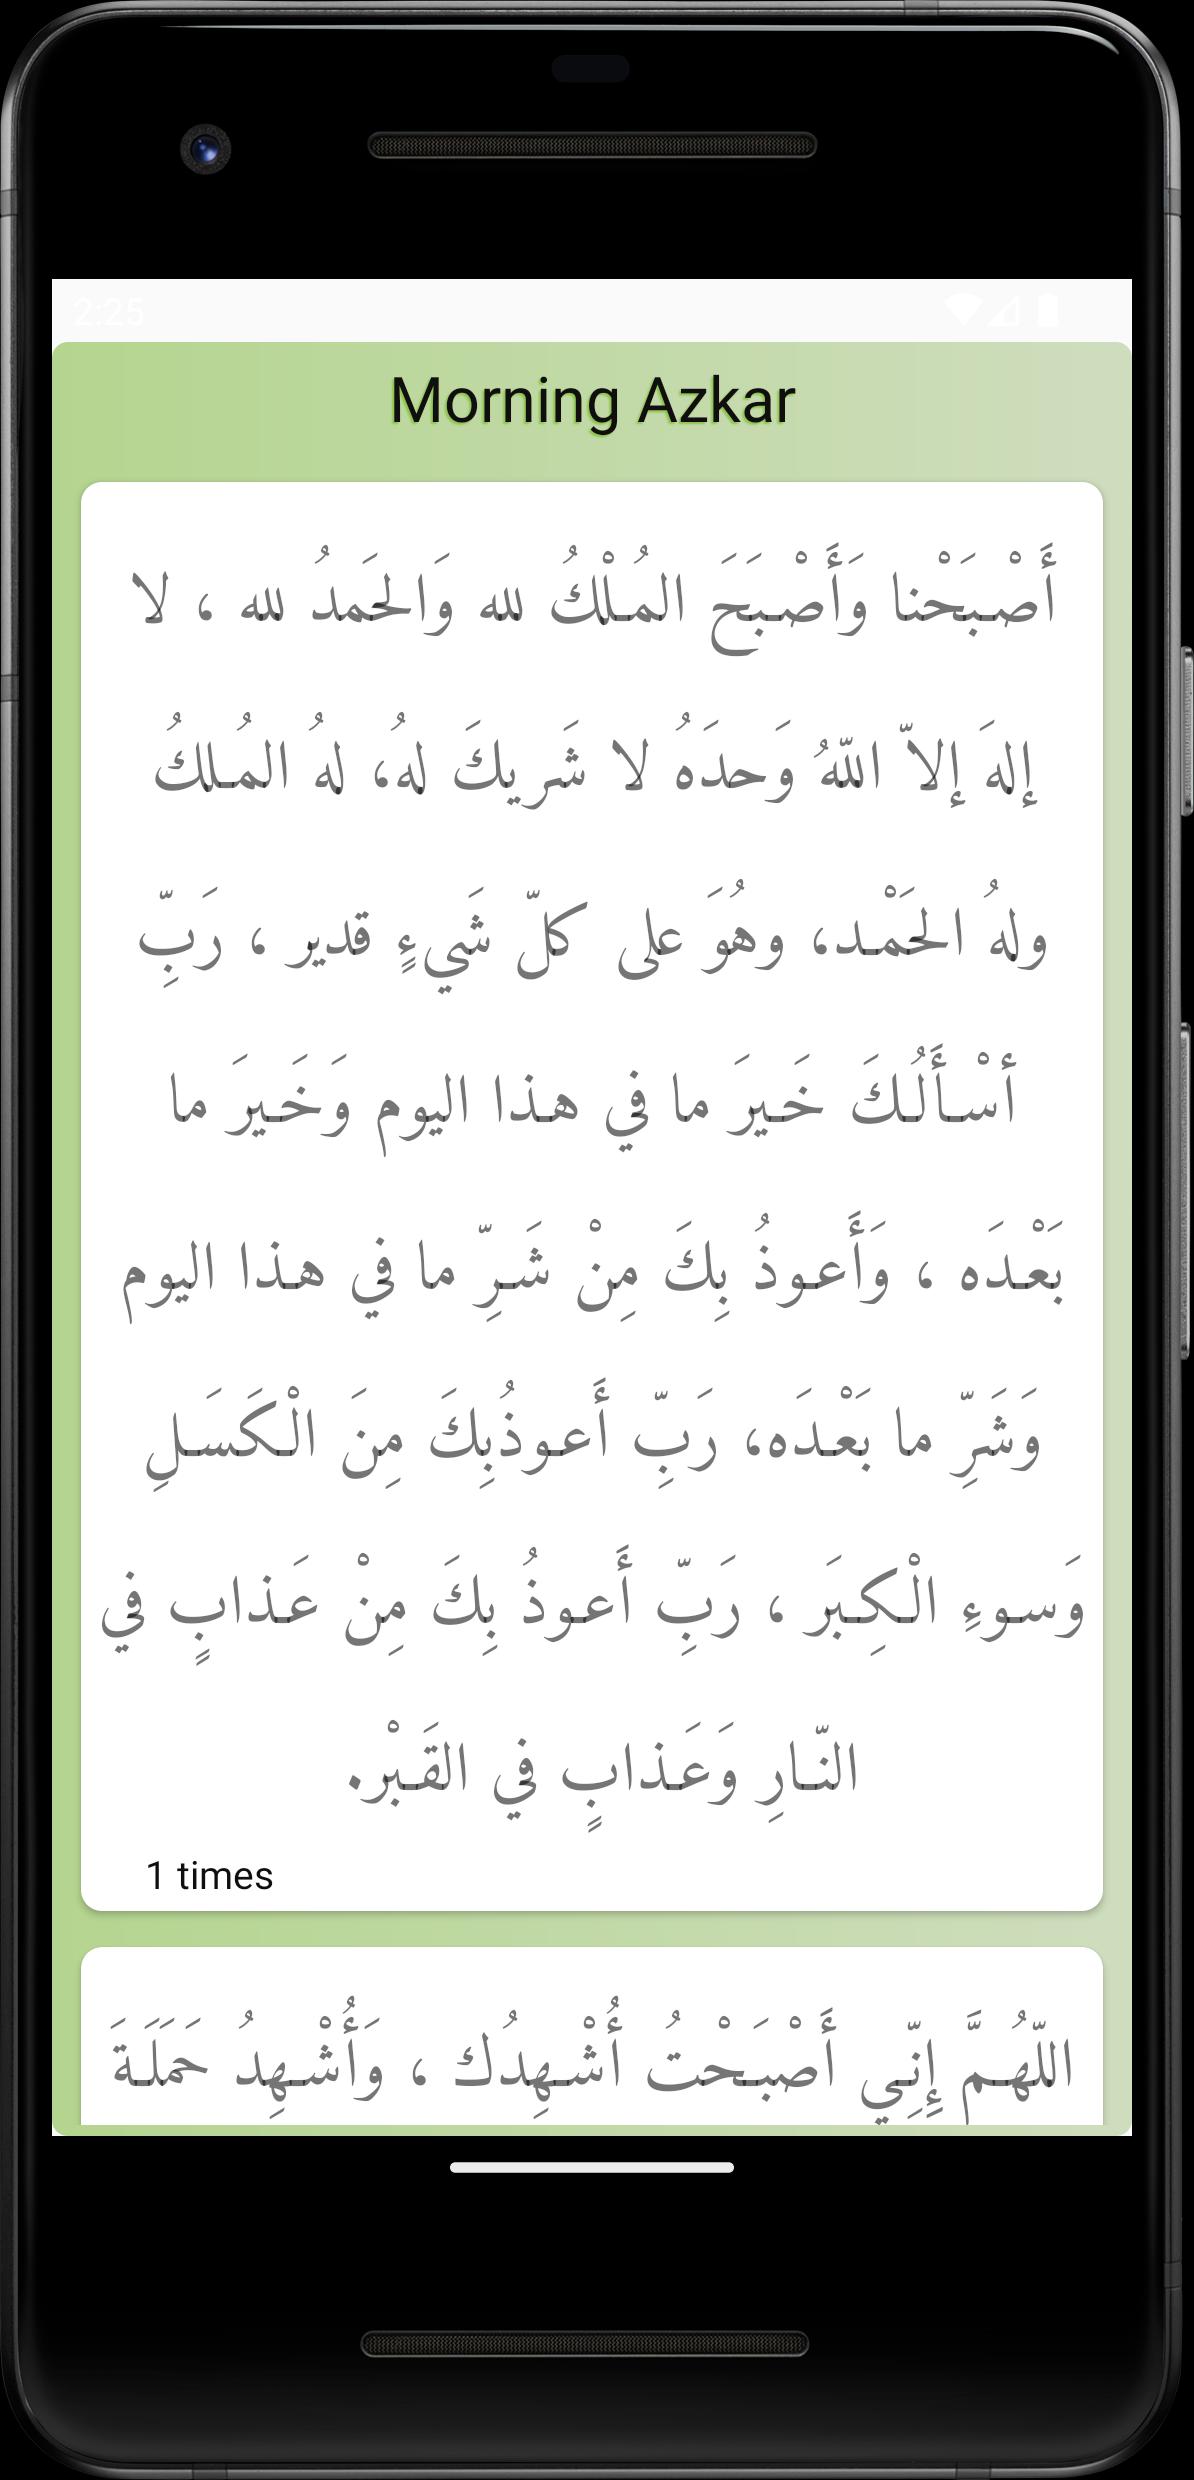 2:25
Morning Azkar
أَصْـبَحْنا وَأَصْـبَحَ المُـلْكُ لله وَالحَمدُ لله ، لا
إلهَ إلاّ اللّهُ وَحدَهُ لا شَريكَ لهُ، لهُ المُـلكُ
ولهُ الحَمْـد، وهُوَ على كلّ شَيءٍ قدير ، رَبِّ
أسْـأَلُـكَ خَـيرَ ما في هـذا اليوم وَخَـيرَ ما
بَعْـدَه ، وَأَعـوذُ بِكَ مِنْ شَـرِّ ما في هـذا اليوم
وَشَرِّ ما بَعْـدَه، رَبِّ أَعـوذُبِكَ مِنَ الْـكَسَـلِ
وَسـوءِ الْـكِـبَر ، رَبِّ أَعـوذُ بِكَ مِنْ عَـذابٍ في
النّـارِ وَعَـذابٍ في القَـبْر.
1 times
اللّهُـمَّ إِنِّـي أَصْبَـحْتُ أُشْـهِدُك ، وَأُشْـهِدُ حَمَلَـةَ